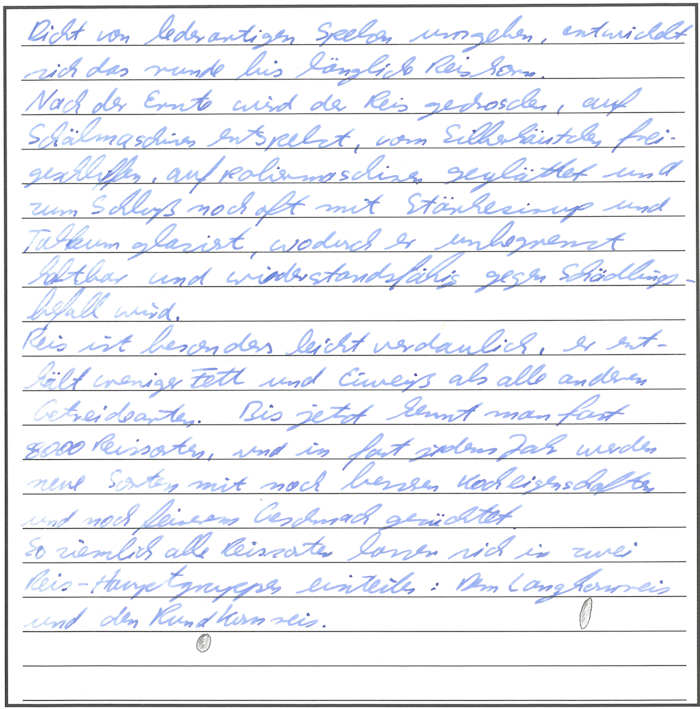 Dicht von lederartigen Spelzen umgeben, entwickelt
sich das runde bis längliche Reiskorn.
Nach der Ernte wird der Reis gedroschen, auf
Schälmaschinen entspelzt, vom Silberhäutchen frei-
geschliffen, auf Poliermaschinen geglättet und
zum Schluß noch oft mit Stärkesirup und
Talkum glasiert, wodurch er unbegrenzt
haltbar und wiederstandsfähig gegen Schädlings-
befall wird.
Reis ist besonders leicht verdaulich, er ent-
hält weniger Fett und Eiweiß als alle anderen
Getreidearten. Bis jetzt kennt man fast
8000 Reissorten, und in fast jedem Jahr werden
neue Sorten mit noch besseren Kocheigenschaften
und noch feinerem Geschmack gezüchtet.
So ziemlich alle Reissorten lassen sich in zwei
Reis-Hauptgruppen einteilen: Dem Langkornreis
und den Rundkornreis.